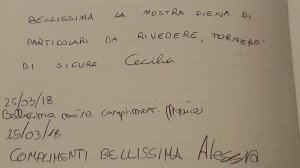 BELLISSIMA LA MOSTRA PIENA DI
PARTICOLARI DA RIVEDERE, TORNERO'
DI SICURO Cecilia
25/03/18
Bellissima complimenti
25/03/18
COMPLIMENTI BELLISSIMA Alessia